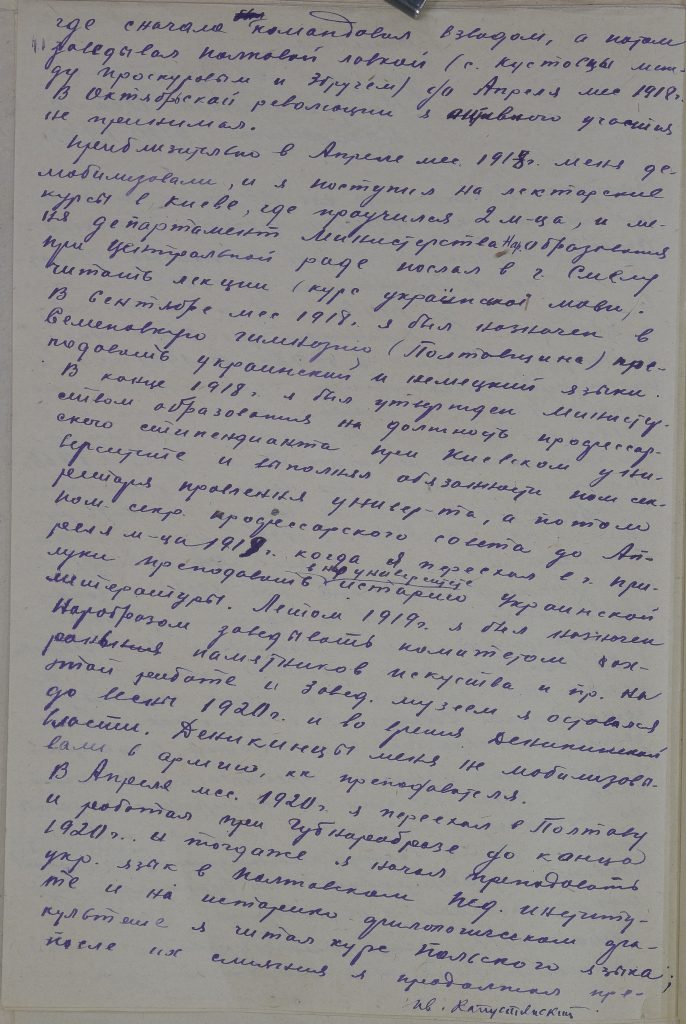 где сначала был командовал взводом, а потом
заведывал полковой лавкой (с. Кустовцы меж-
ду Проскуровым и Збручем) до Апреля мес 1918 г.
В Октябрьской революции я активного участия
не принимал.
Приблизительно в Апреле мес. 1918 г. меня де-
мобилизовали, и я поступил на лекторские
курсы в Киеве, где проучился 2 м-ца, и ме-
ня департамент Министерства Нар. образования
при Центральной раде послал в г. Смелу
читать лекции (курс украïнськоï мови).
В Сентябре мес 1918. я был назначен в
Семеновскую гимназию (Полтавщина) пре-
подавать украинский и немецкий языки.
В конце 1918 г. я был утвержден Министер-
ством образования на должность профессор-
ского стипендианта при Киевском уни-
верситете и выполнял обязанности пом сек-
ретаря правления универ-та, а потом
пом. секр. профессорского совета до Ап-
реля м-ца 1919 г. когда я переехал в г. При-
луки преподавать в нар университете историю Украинской
литературы. Летом 1919 г. я был назначен
Наробразом заведывать комитетом сох-
ранения памятников искуства и пр. На
этой работе и завед. музеем я оставался
до весны 1920 г. и во время Деникинской
власти. Деникинцы меня не мобилизовы-
вали в армию, кк преподавателя.
В Апреле мес. 1920 г. я переехал в Полтаву
и работал при Губнаробразе до конца
1920 г. и тогда же я начал преподавать
укр. язык в Полтавском Пед. Институ-
те и на историко филологическом фа-
культете я читал курс Польского языка;
после их слияния я продолжал пре-
Ив. Капустянский